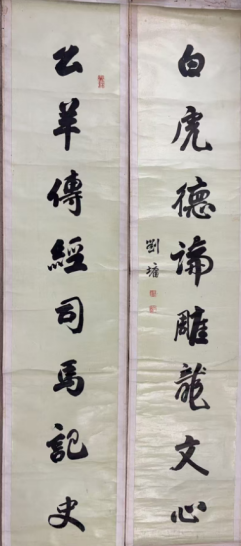 白虎德論雕龍文心
劉墉
公羊傳經司馬記史